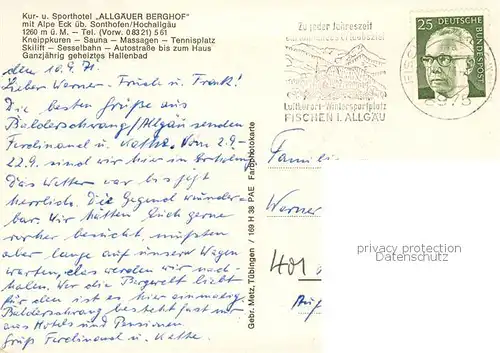 Kur- u. Sporthotel „ALLGÄUER BERGHOF"
mit Alpe Eck üb. Sonthofen/Hochallgäu
1260 m ü. M. – Tel. (Vorw. 0 83 21) 5 61
Kneippkuren – Sauna – Massagen – Tennisplatz
Skilift – Sesselbahn – Autostraße bis zum Haus
Ganzjährig geheiztes Hallenbad
den 10.9.71.
Lieber Werner - Früch u. Frank!
Die besten Grüße aus
Balderschwang/Allgäu senden
Ferdinand u. Kathe. Vom 2.9.-
22.9. sind wir hier in
Das Wetter war bis jetzt
herrlich. Die Gegend wunder-
bar. Wir hätten Euch gerne
vorher besucht, mußten
aber lange auf unseren Wagen
warten, das werden wir nach-
holen. Wer die Bergwelt liebt
für den ist es hier einmalig
Balderschwang besteht fast nur
aus Hotels und Pensionen.
Gruß Ferdinand u. Kathe.
Gebr. Metz, Tübingen / 169 H 38 PAE Farbphotokarte
Zu jeder Jahreszeit
Luftkurort-Wintersportplatz
FISCHEN I. ALLGÄU
25 DEUTSCHE
BUNDESPOST
FISCHEN
8975
Famili
Werner
401
Auf
privacy protection
Datenschutz